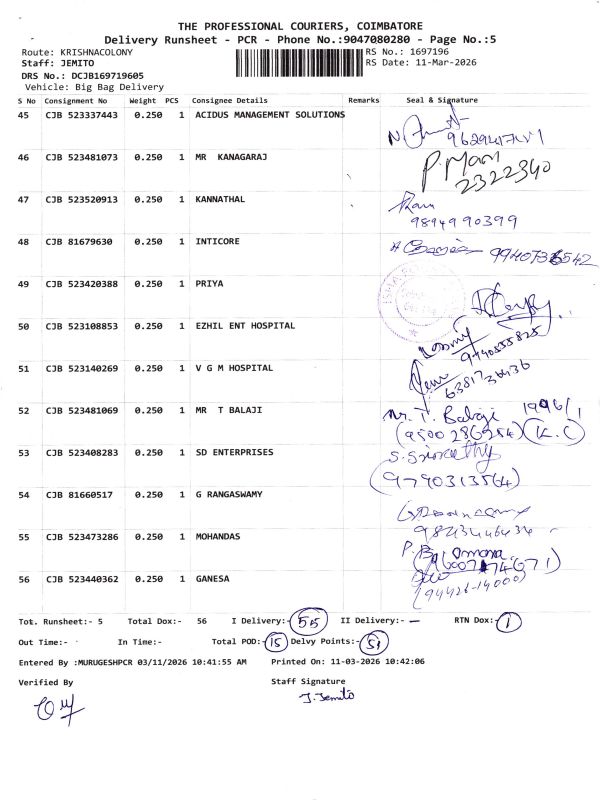 THE PROFESSIONAL COURIERS, COIMBATORE
Delivery Runsheet - PCR - Phone No.:9047080280 - Page No.:5
Route: KRISHNACOLONY RS No.: 1697196
Staff: JEMITO RS Date: 11-Mar-2026
DRS No.: DCJB169719605
Vehicle: Big Bag Delivery
S No Consignment No Weight PCS Consignee Details Remarks Seal & Signature
45 CJB 523337443 0.250 1 ACIDUS MANAGEMENT SOLUTIONS
46 CJB 523481073 0.250 1 MR KANAGARAJ P. Mani 2322340
47 CJB 523520913 0.250 1 KANNATHAL
9894990399
48 CJB 81679630 0.250 1 INTICORE
49 CJB 523420388 0.250 1 PRIYA
50 CJB 523108853 0.250 1 EZHIL ENT HOSPITAL
51 CJB 523140269 0.250 1 V G M HOSPITAL
52 CJB 523481069 0.250 1 MR T BALAJI Mr. T. Balaji
(K.C)
53 CJB 523408283 0.250 1 SD ENTERPRISES
(9790313564)
54 CJB 81660517 0.250 1 G RANGASWAMY
55 CJB 523473286 0.250 1 MOHANDAS
56 CJB 523440362 0.250 1 GANESA
(94426-14000)
Tot. Runsheet:- 5 Total Dox:- 56 I Delivery:- 55 II Delivery:- — RTN Dox:- 1
Out Time:- In Time:- Total POD:- 15 Delvy Points:- 51
Entered By :MURUGESHPCR 03/11/2026 10:41:55 AM Printed On: 11-03-2026 10:42:06
Verified By Staff Signature
J. Jemito